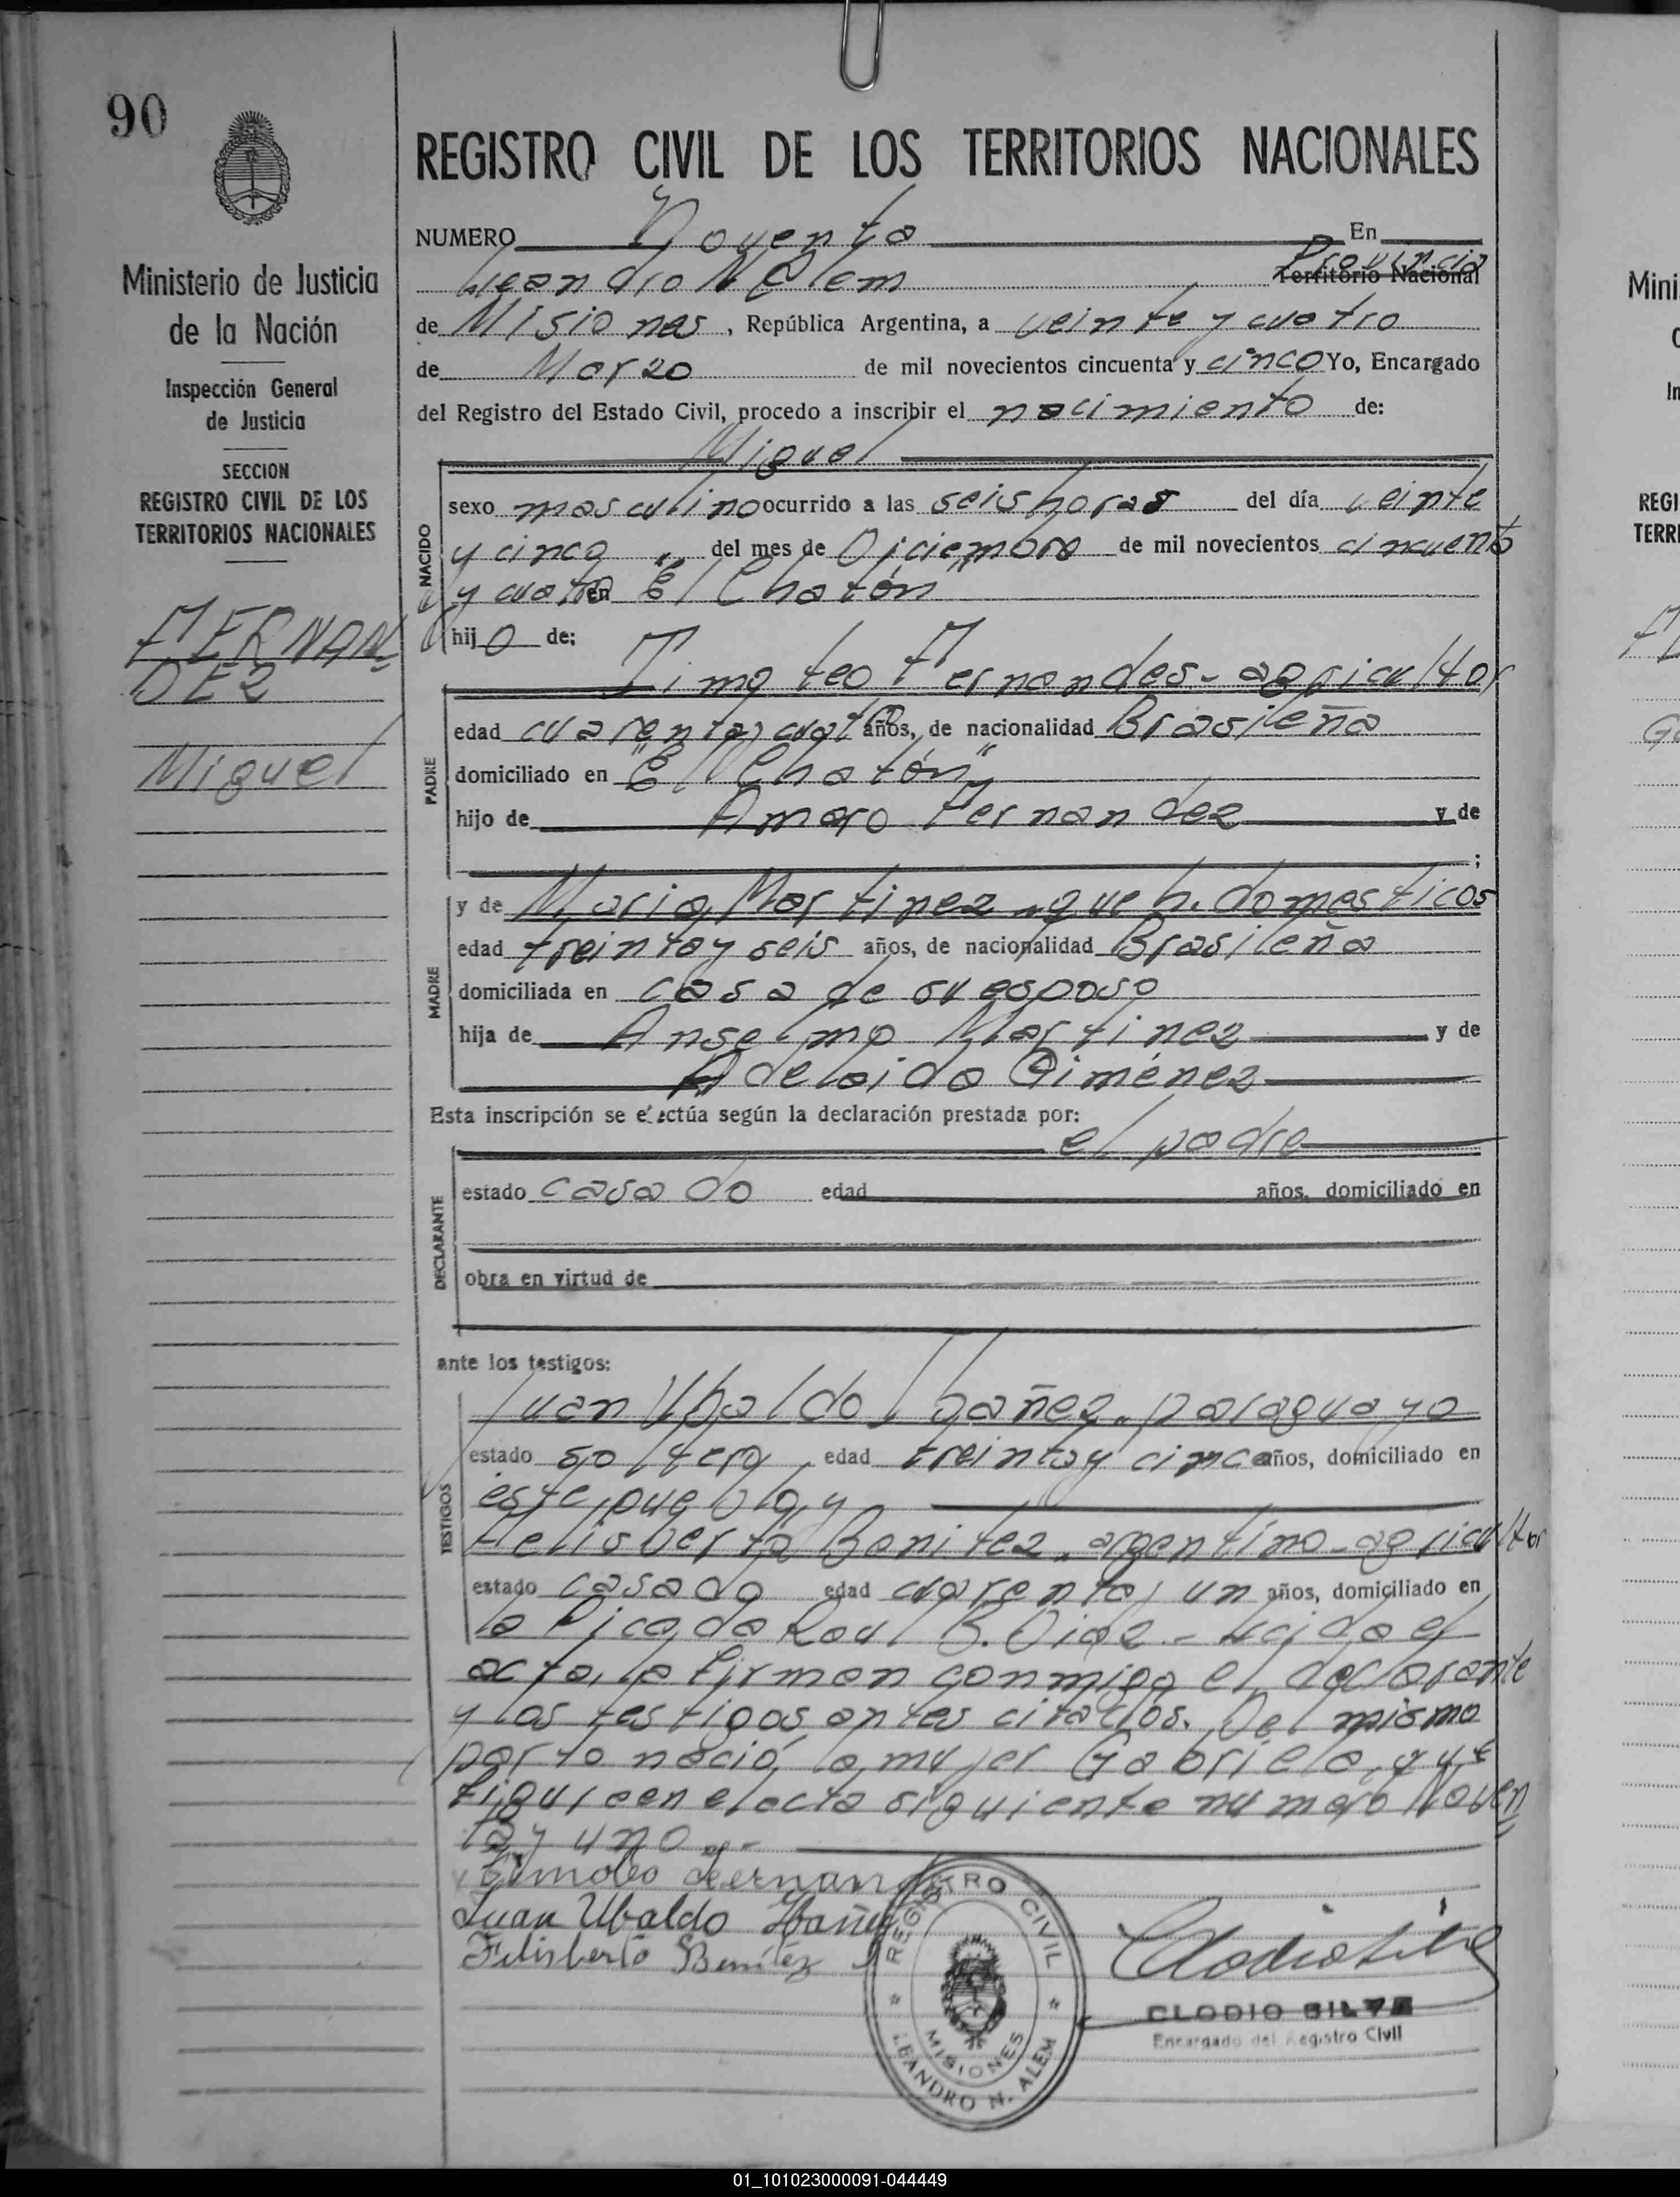 90
Ministerio de Justicia
de la Nación
Inspección General
de Justicia
SECCION
REGISTRO CIVIL DE LOS
TERRITORIOS NACIONALES
FERNAN-
DEZ
Miguel
REGISTRO CIVIL DE LOS TERRITORIOS NACIONALES
NUMERO Noventa En
Leandro N Alem Provincia Territorio Nacional
de Misiones, República Argentina, a veinte y cuatro
de Marzo de mil novecientos cincuenta y cinco Yo, Encargado
del Registro del Estado Civil, procedo a inscribir el nacimiento de:
Miguel
NACIDO
sexo masculino ocurrido a las seis horas del día veinte
y cinco del mes de Diciembre de mil novecientos cincuenta
y cuatro en "El Chatón"
hijo de:
PADRE
Timoteo Fernandes - agricultor
edad cuarenta y cuatro años, de nacionalidad Brasileña
domiciliado en "El Chatón"
hijo de Amaro Fernandez y de
;
MADRE
y de Maria Martinez - queh. domesticos
edad treinta y seis años, de nacionalidad Brasileña
domiciliada en casa de su esposo
hija de Anselmo Martinez y de
Adelaida Giménez
Esta inscripción se efectúa según la declaración prestada por:
el padre
DECLARANTE
estado casado edad años, domiciliado en
obra en virtud de
ante los testigos:
TESTIGOS
Juan Ubaldo Ibañez - paraguayo
estado soltero, edad treinta y cinco años, domiciliado en
este pueblo, y
Felisberto Benitez - argentino - agricultor
estado casado edad cuarenta y un años, domiciliado en
la Picada Raul B. Diaz - Leida el
acta, la firman conmigo el declarante
y los testigos antes citados. Del mismo
parto nació la mujer Gabriela, que
figura en el acta siguiente numero Noven
ta y uno.-
Timoteo Fernan
Juan Ubaldo Ibañez
Filisberto Benítez
REGISTRO CIVIL
MISIONES
LEANDRO N. ALEM
Clodio Silva
CLODIO SILVA
Encargado del Registro Civil
Mini
REGI
TERRI
01_101023000091-044449